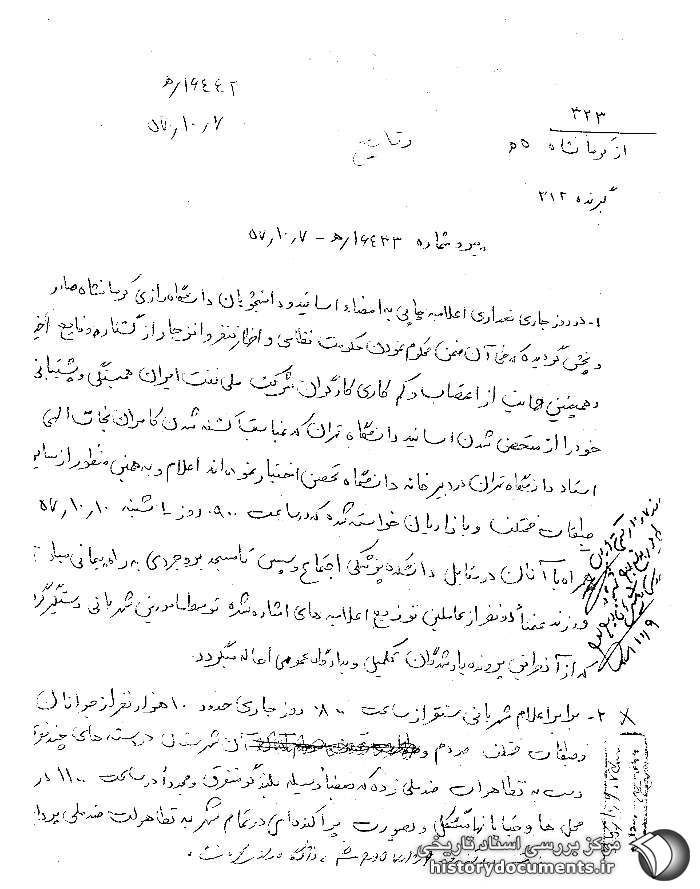 ۱۶۴۴۲/ه
۵۷٫۱۰٫۷
۳۲۳
از کرمانشاه ۵ه
وقایع
گیرنده ۳۱۲
پیرو شماره ۱۶۴۳۳/ه - ۵۷٫۱۰٫۷
۱- در روز جاری تعدادی اعلامیه چاپی به امضاء اساتید و دانشجویان دانشگاه رازی کرمانشاه صادر
و پخش گردیده که طی آن ضمن محکوم نمودن حکومت نظامی و اظهار تنفر و انزجار از کشتار و وقایع اخیر
و همچنین حمایت از اعتصاب و کم کاری کارگران شرکت ملی نفت ایران همبستگی و پشتیبانی
خود را از متحصن شدن اساتید دانشگاه تهران که بمناسبت کشته شدن کامران نجات الهی
استاد دانشگاه تهران در دبیرخانه دانشگاه تحصن اختیار نموده اند اعلام و به همین منظور از سایر
طبقات مختلف و بازاریان خواسته شده که در ساعت ۰۹۰۰ روز یکشنبه ۵۷٫۱۰٫۱۰
همراه با آنان در مقابل دانشکده پزشکی اجتماع و سپس تا مسجد بروجردی به راه پیمائی
ورزند ضمناً دو نفر از عاملین توزیع اعلامیه های اشاره شده توسط مامورین شهربانی دستگیر
که از آن طریق پرونده یاد شدگان تکمیل و به دادگاه عمومی احاله میگردد.
۲- برابر اعلام شهربانی سنقر از ساعت ۰۸۰۰ روز جاری حدود ۱۰ هزار نفر از جوانان
و طبقات مختلف مردم آن شهرستان در دسته های چند نفری
دست به تظاهرات ضد ملی زده که بعضاً وسیله بلندگو متفرق و مجدداً در ساعت ۱۱۰۰ در
محل ها و خیابانها متشکل و بصورت پراکنده ای در تمام شهر به تظاهرات ضد ملی
مرکز بررسی اسناد تاریخی
historydocuments.ir